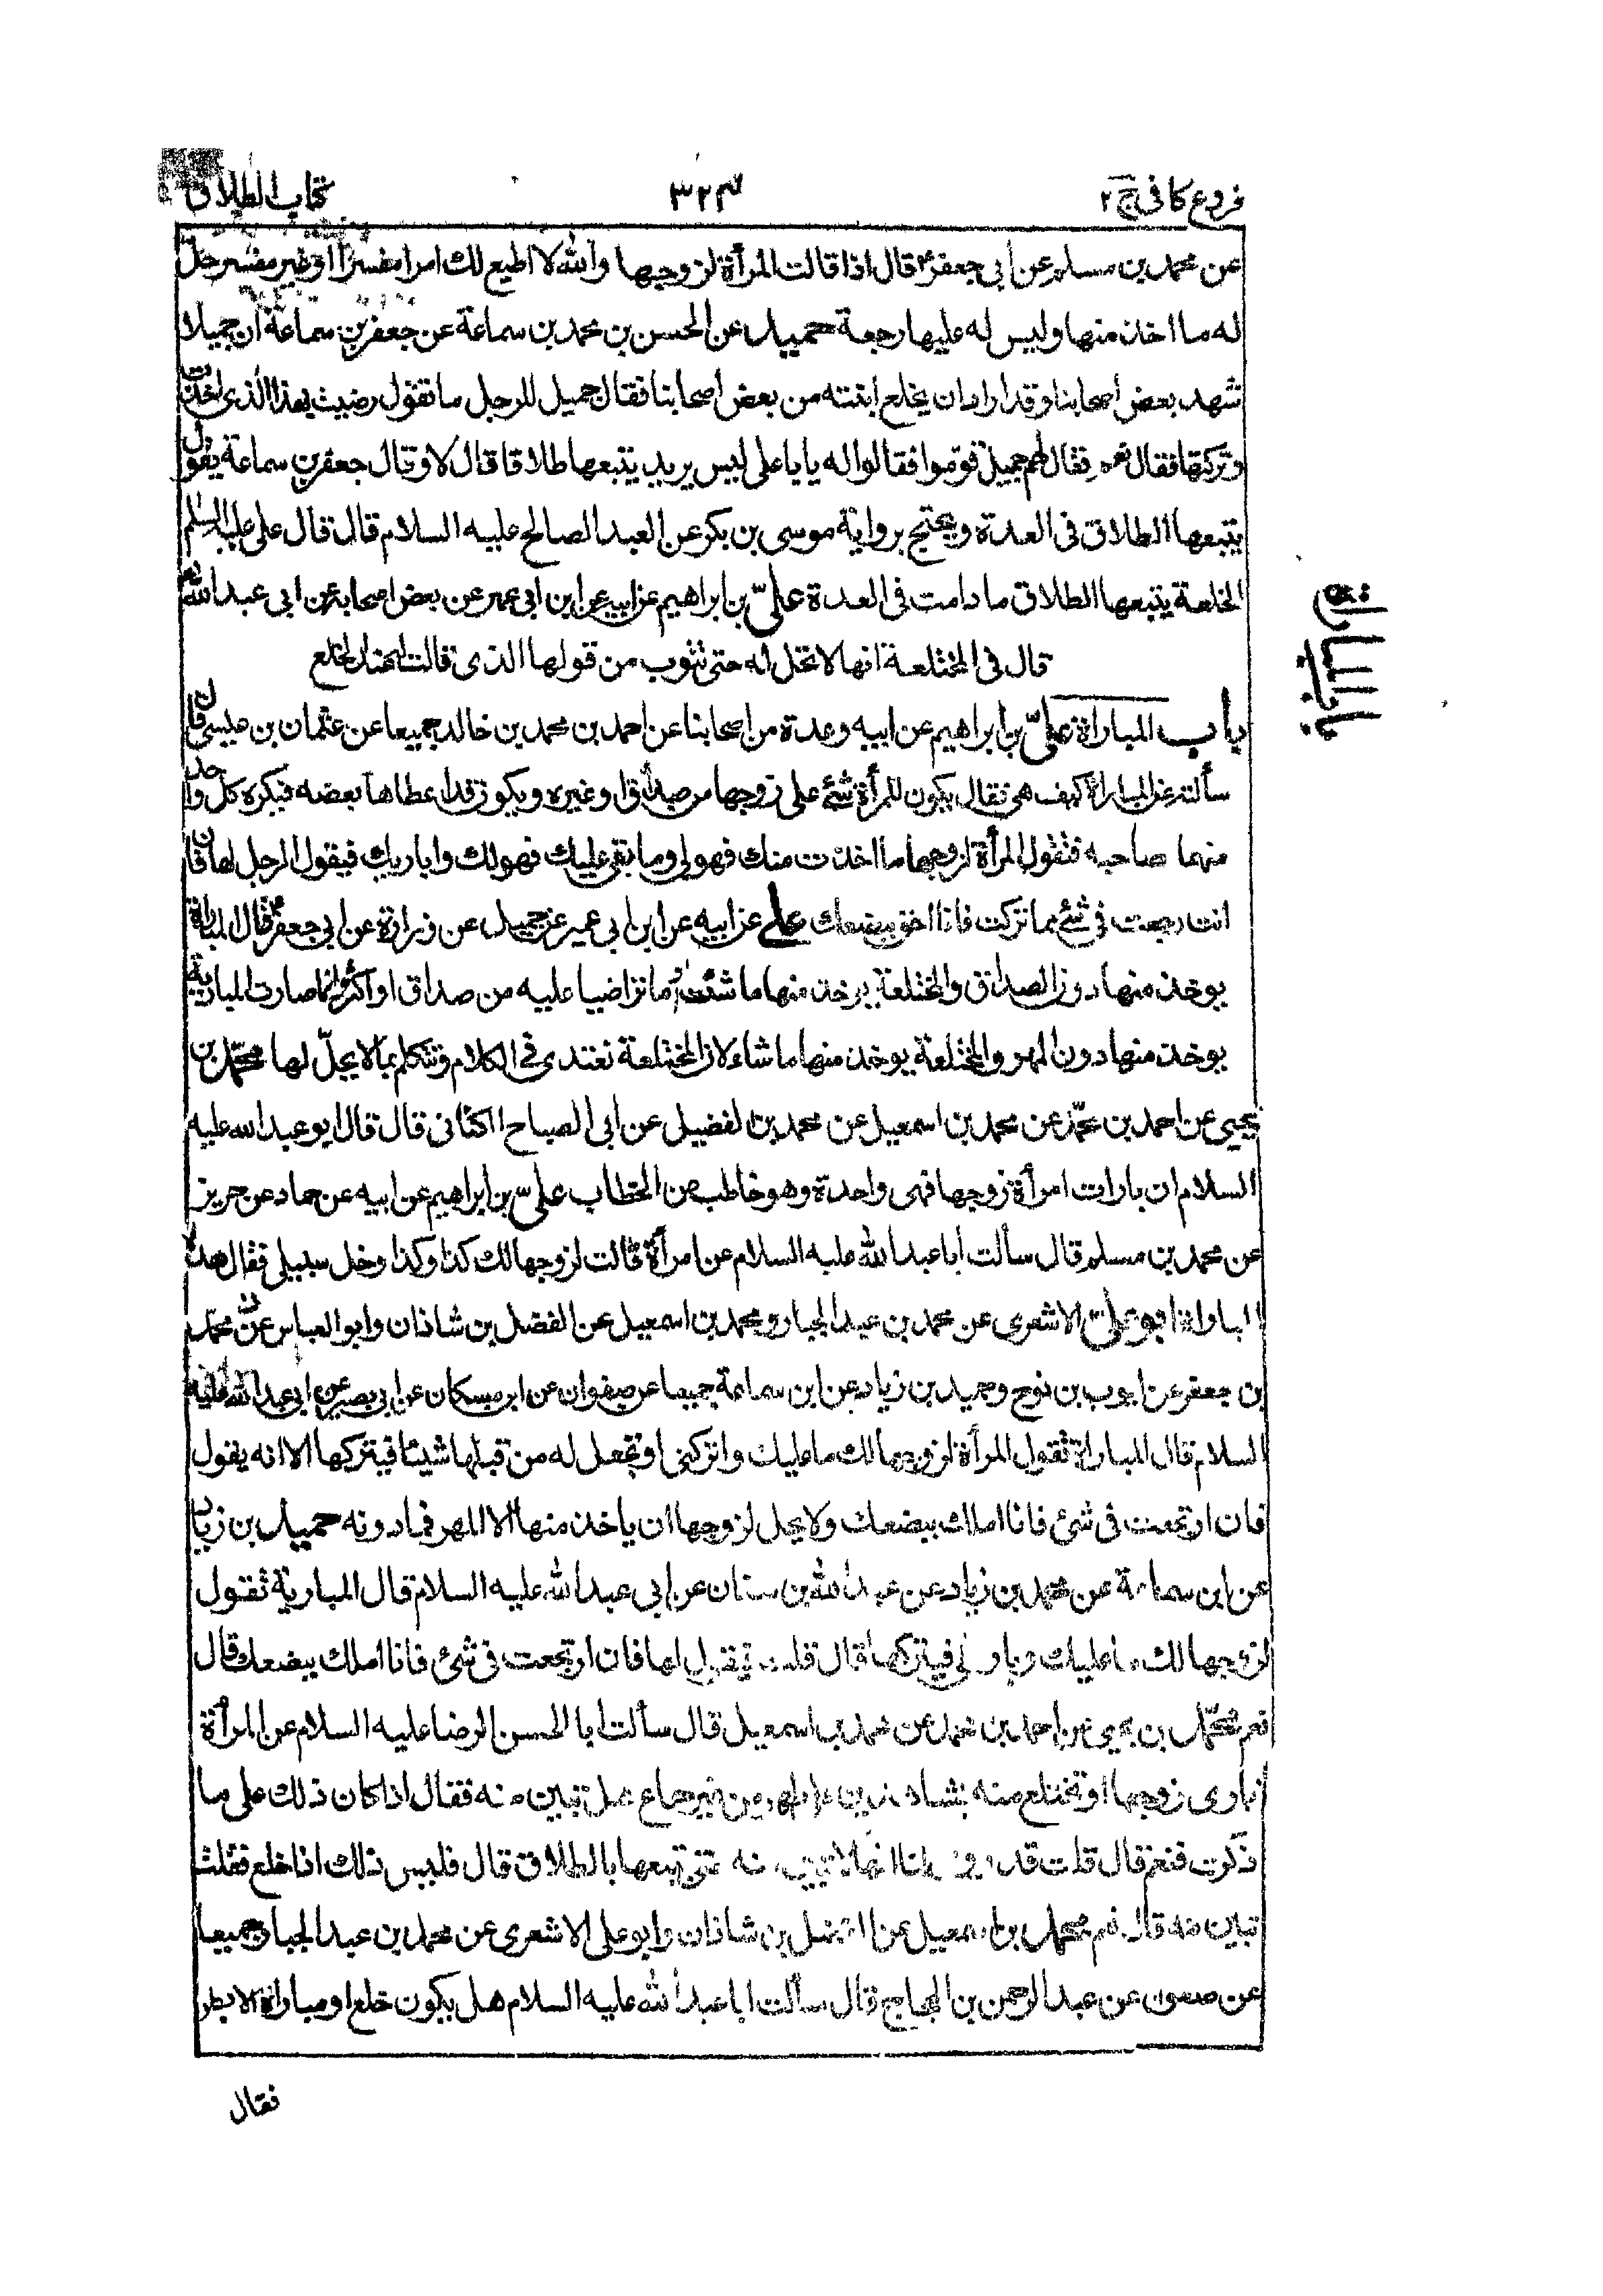 فروع كافى ج ٢
٣٢٣
كتاب الطلاق
عن محمد بن مسلم عن أبى جعفر ع قال اذا قالت المرأة لزوجها والله لا اطيع لك امرا مفسرا او غير مفسر حل
له ما اخذ منها وليس له عليها رجعة حميد عن الحسن بن محمد بن سماعة عن جعفر بن سماعة ان جميلا
شهد بعض اصحابنا وقد اراد ان يخلع ابنته من بعض اصحابنا فقال جميل للرجل ما تقول رضيت بهذا الذى اخذت
وتركتها فقال نعم فقال لهم جميل قوموا فقالوا له يا يا على ليس يريد يتبعها طلاقا قال لا وقال جعفر بن سماعة يقول
يتبعها الطلاق فى العدة ويحتج برواية موسى بن بكر عن العبد الصالح عليه السلام قال قال على عليه السلم
المختلعة يتبعها الطلاق ما دامت فى العدة علىّ بن ابراهيم عن ابيه عن ابن ابى عمير عن بعض اصحابه عن ابى عبد الله ع
قال فى المختلعة انها لا تحل له حتى تتوب من قولها الذى قالت له عند الخلع
باب المباراة
باب المباراة علىّ بن ابراهيم عن ابيه وعدة من اصحابنا عن احمد بن محمد بن خالد جميعا عن عثمان بن عيسى قال
سألته عن المباراة كيف هى فقال يكون للمرأة شئ على زوجها من صداق او غيره ويكون قد اعطاها بعضه فيكره كل واحد
منهما صاحبه فتقول المرأة لزوجها ما اخذت منك فهو لى وما بقى عليك فهو لك وابارئك فيقول الرجل لها فان
انت رجعت فى شئ مما تركت فانا احق ببضعك على عن ابيه عن ابن ابى عمير عن جميل عن زرارة عن ابى جعفر ع قال المباراة
يوخذ منها دون الصداق والمختلعة يوخذ منها ما شئت او ما تراضيا عليه من صداق او اكثر وانما صارت المبارية
يوخذ منها دون المهر والمختلعة يوخذ منها ما شاء لان المختلعة تعتدى فى الكلام وتتكلم بما لا يحلّ لها محمّد بن
يحيى عن احمد بن محمّد عن محمد بن اسمعيل عن محمد بن الفضيل عن ابى الصباح الكنانى قال قال ابو عبد الله عليه
السلام ان بارات امرأة زوجها فهى واحدة وهو خاطب من الخطاب علىّ بن ابراهيم عن ابيه عن حماد عن حريز
عن محمد بن مسلم قال سألت أبا عبد الله عليه السلام عن امرأة قالت لزوجها لك كذا وكذا وخل سبيلى فقال هذه
المباراة ابو على الاشعرى عن محمد بن عبد الجبار ومحمد بن اسمعيل عن الفضل بن شاذان وابو العباس عن محمد
بن جعفر عن ايوب بن نوح وحميد بن زياد عن ابن سماعة جميعا عن صفوان عن ابن مسكان عن ابى بصير عن ابى عبد الله عليه
السلام قال المباراة تقول المرأة لزوجها لك ما عليك واتركنى او تجعل له من قبلها شيئا فيتركها الا انه يقول
فان ارتجعت فى شئ فانا املك ببضعك ولا يحل لزوجها ان ياخذ منها الا المهر فما دونه حميد بن زياد
عن ابن سماعة عن محمد بن زياد عن عبد الله بن سنان عن ابى عبد الله عليه السلام قال المبارية تقول
لزوجها لك ما عليك وبارئنى فيتركها قال قلت فيقول لها فان ارتجعت فى شئ فانا املك ببضعك قال
نعم محمّد بن يحيى عن احمد بن محمد عن محمد بن اسمعيل قال سألت ابا الحسن الرضا عليه السلام عن المرأة
تبارى زوجها او تختلع منه بشاهدين على طهر من غير جماع هل تبين منه فقال اذا كان ذلك على ما
ذكرت فنعم قال قلت قد روى لنا انها لا تبين منه حتى يتبعها بالطلاق قال فليس ذلك اذا خلع فقلت
تبين منه قال نعم محمد بن اسمعيل عن الفضل بن شاذان وابو على الاشعرى عن محمد بن عبد الجبار جميعا
عن صفوان عن عبد الرحمن بن الحجاج قال سألت ابا عبد الله عليه السلام هل يكون خلع او مباراة الا بطهر
فقال